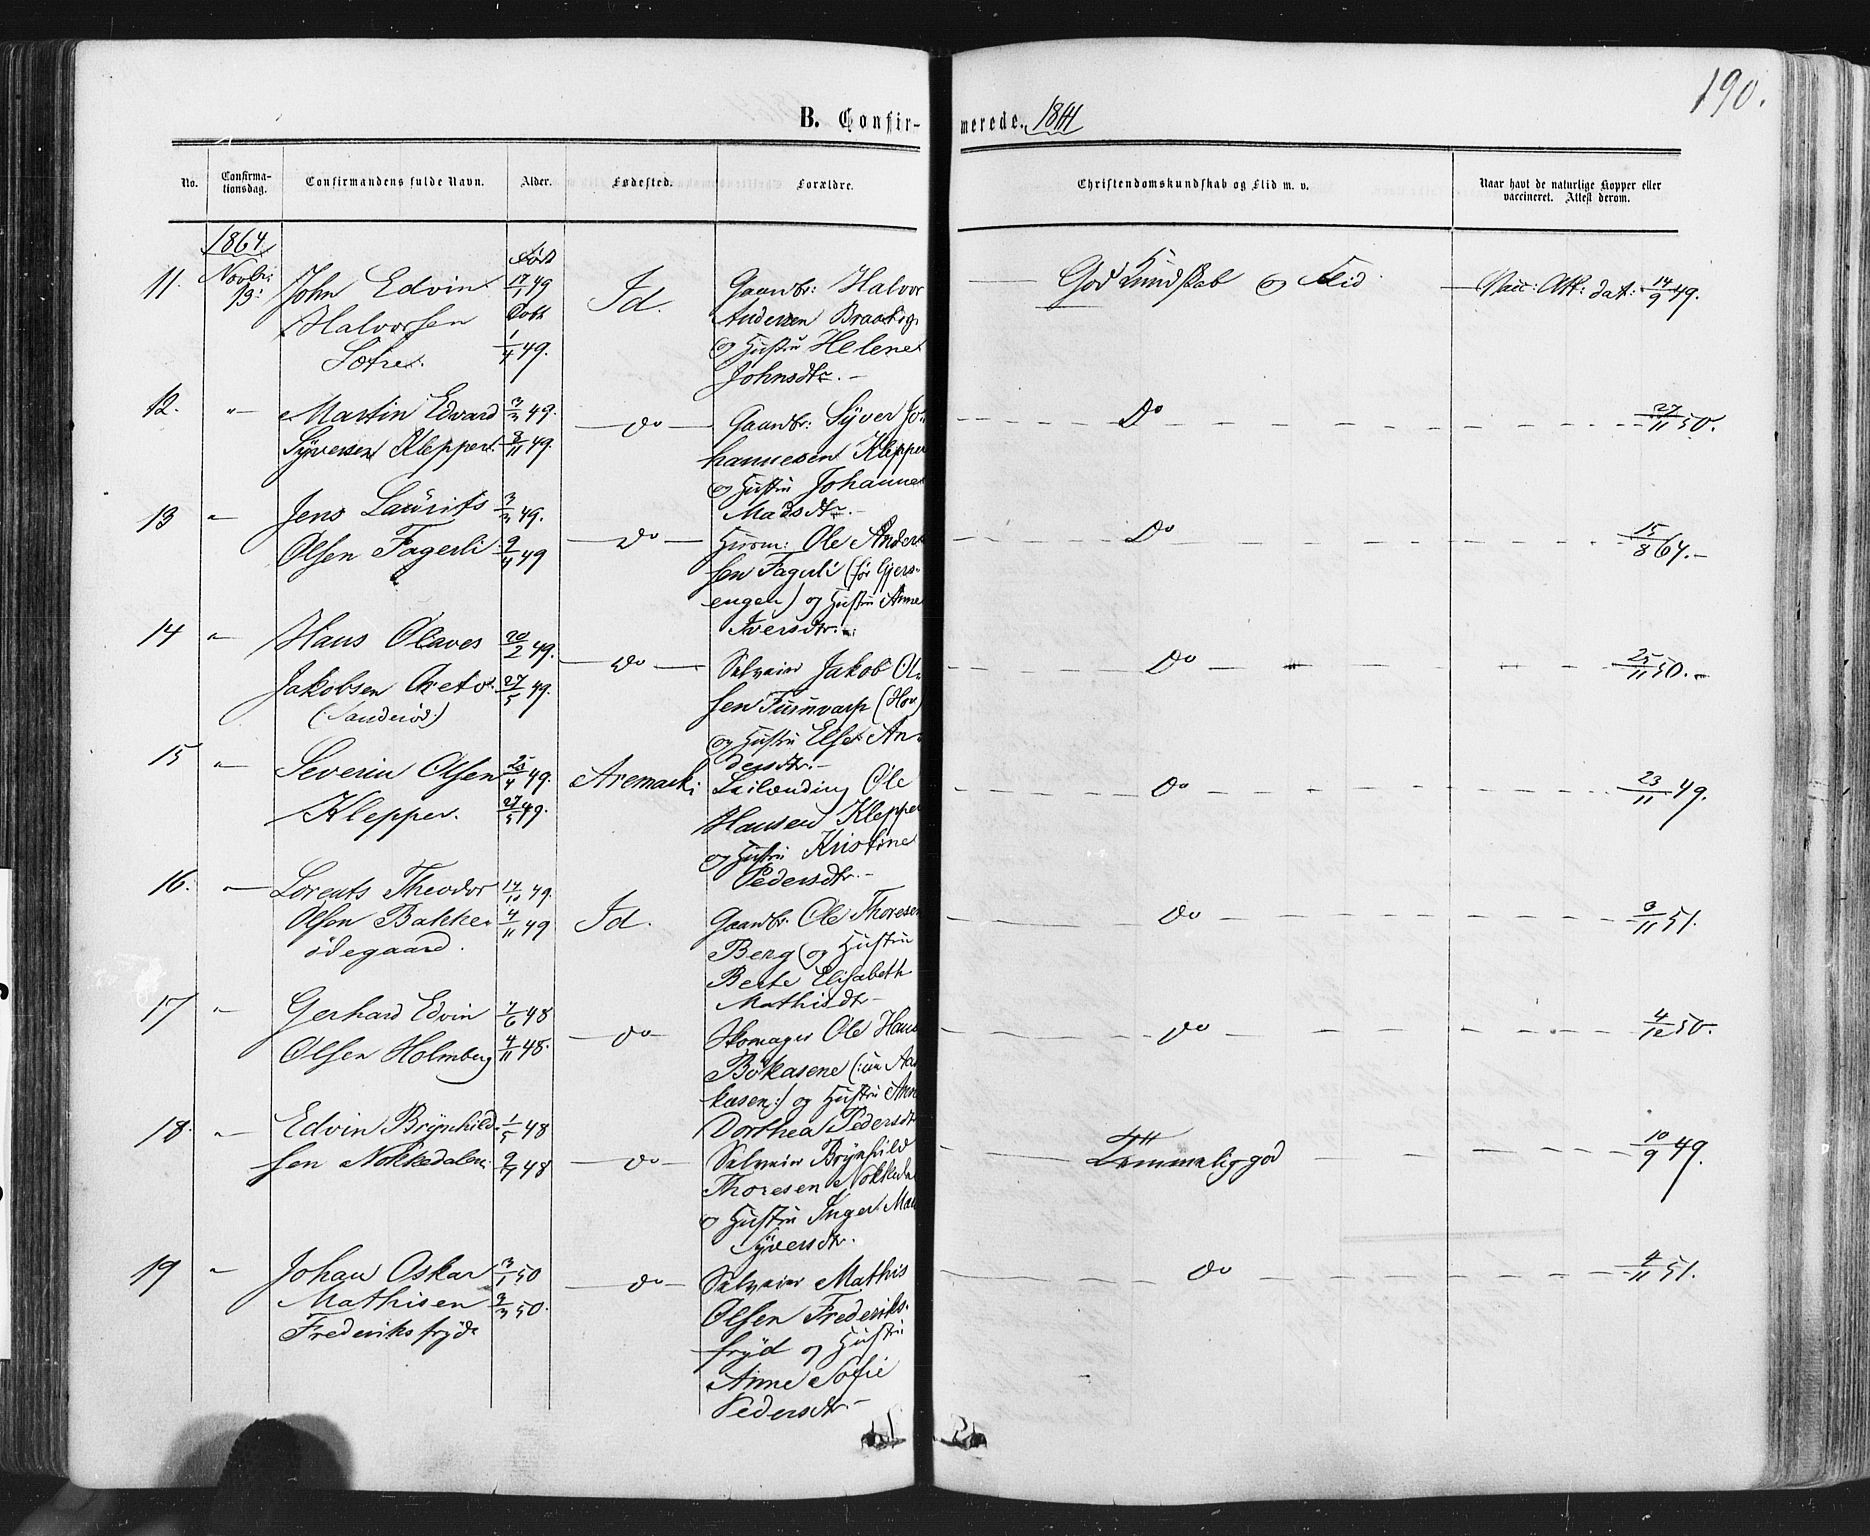 190.
B. Confir-
merede. 1864
No.
Confirma-
tionsdag.
Confirmandens fulde Navn.
Alder.
Fødested.
Forældre.
Christendomskundskab og Flid m. v.
Naar havt de naturlige Kopper eller
vaccineret. Attest derom.
1864
Født
11. Novbr: John Edvin 17/1 49 Id. Gaardbr: Halvor God Kundskab og Flid Vacc: Att: dat: 14/9 49.
Halvorsen Døbt Andersen
og Hustru Helene
1/4 49.
Johnsdtr. -
12. " Martin Edvard 3/3 49. Do Gaardbr: Syver Jo- Do 27/11 50.
Syversen Klepper. 49. hannesen Klepper
og Hustru Johanne
Madsdtr. -
13 " Jens Laurits 49. Do Husm: Ole Ander- Do 15/8 64. -
Olsen Fagerli 49 sen Fagerli (før Gjers-
engen) og Hustru Anne
Iversdtr. -
14 " Hans Olaves 20/2 49. Do Selveier Jakob Ol- Do 25/11 50. -
Jakobsen 27/5 49. sen
og Hustru Else An-
dersdtr. -
15 " Severin Olsen 25/4 49. Aremark; Leilænding Ole Do 23/11 49.
Klepper. 27/5 49. Hansen Klepper
og Hustru Kristine
Pedersdtr. -
16. " Lorents Theodor 49. Id. Gaardbr. Ole Thoresen Do 3/11 51.
Olsen Bakke- 4/11 49 Berg og Hustru
ødegaard. Berte Elisabeth
Mathisdtr -
17 " Gerhard Edvin 48 Do Skomager Ole Hans Do 4/12 50.
Olsen Holmberg 4/11 48.
og Hustru Anne
Dorthea Pedersdtr
18. " Edvin Brynhild- 1/5 48 Do Selveier Brynhild Temmelig god 10/9 49.
sen Nokkedalen 48 Thoresen Nokkeda
og Hustru Inger Mar
Syversdtr.
19 " Johan Oskar 3/1 50 Do Selveier Mathis Do 4/11 51.
Mathisen 3/3 50. Olsen Frederiks-
Frederiksfryd fryd og Hustru
Anne Sofie
Pedersdtr. -